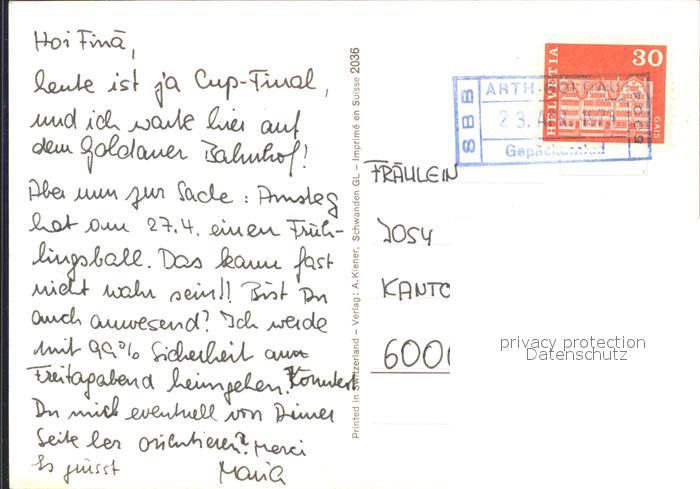 Hoi Finā,
heute ist ja Cup-Final,
und ich warte hier auf
dem Goldauer Bahnhof!
Aber nun zur Sache: Amsteg
hat am 27.4. einen Früh-
lingsball. Das kann fast
nicht wahr sein!! Bist Du
auch anwesend? Ich werde
mit 99% Sicherheit am
Freitagabend heimgehen. Könntest
Du mich eventuell von Deiner
Seite her orientieren? Merci
Es grüsst Maria
Printed in Switzerland – Verlag: A. Kiener, Schwanden GL – Imprimé en Suisse 2036
HELVETIA
30
GAIS
SBB
ARTH-
23.
Gepäck
FRÄULEIN
JOSY
KANTO
6001
privacy protection
Datenschutz